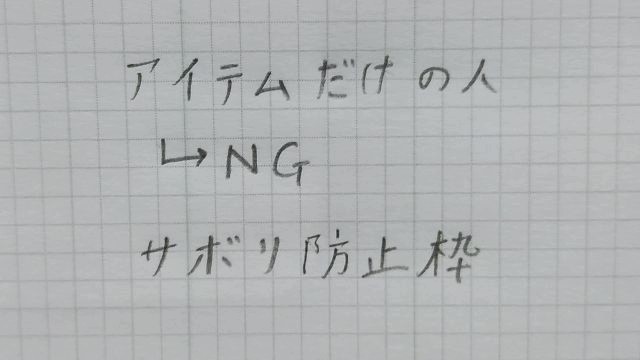 アイテムだけの人
↳ NG
サボリ防止枠